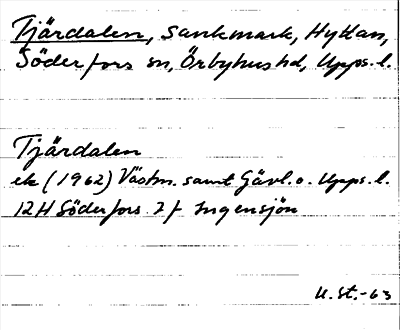 Tjärdalen, sankmark, Hyttan,
Söderfors sn, Örbyhus hd, Upps. l.
Tjärdalen
ek (1962) Västm. samt Gävl. o. Upps. l.
12H Söderfors 7 f Ingensjön
U. St. -63